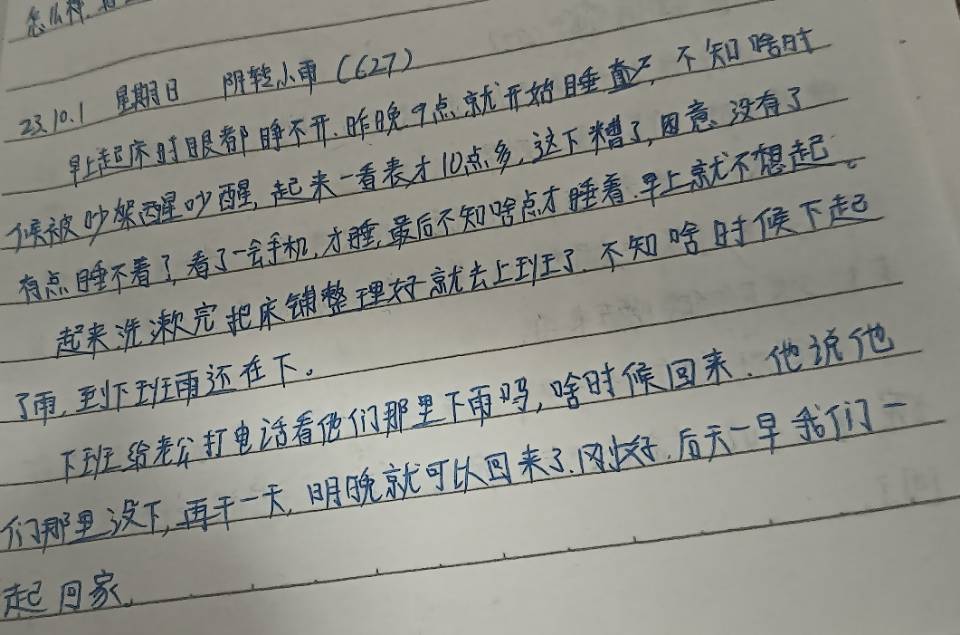 怎么样
23.10.1 星期日 阴转小雨(627)
早上起床时眼都睁不开.昨晚9点就开始睡直了,不知啥时
候被吵架醒吵醒,起来一看表才10点多,这下糟了,困意没有了
有点睡不着了,看了一会手机,才睡,最后不知啥点才睡着.早上就不想起。
起来洗漱完把床铺整理好就去上班了.不知啥时候下起
了雨,到下班雨还在下。
下班给老公打电话看他们那里下雨吗,啥时候回来.他说他
们那里没下,再干一天,明晚就可以回来了.刚好.后天一早我们一
起回家.